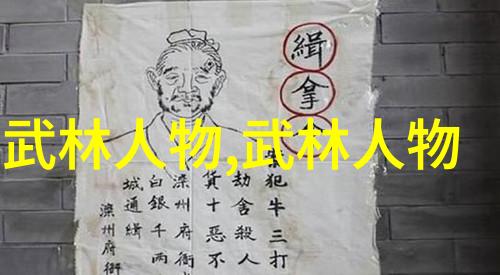 武林人物,武林人物
緝拿
犯牛三打
劫舍殺人
貨十惡不
滦州府衙
白銀千兩
城通緝
滦州府衙